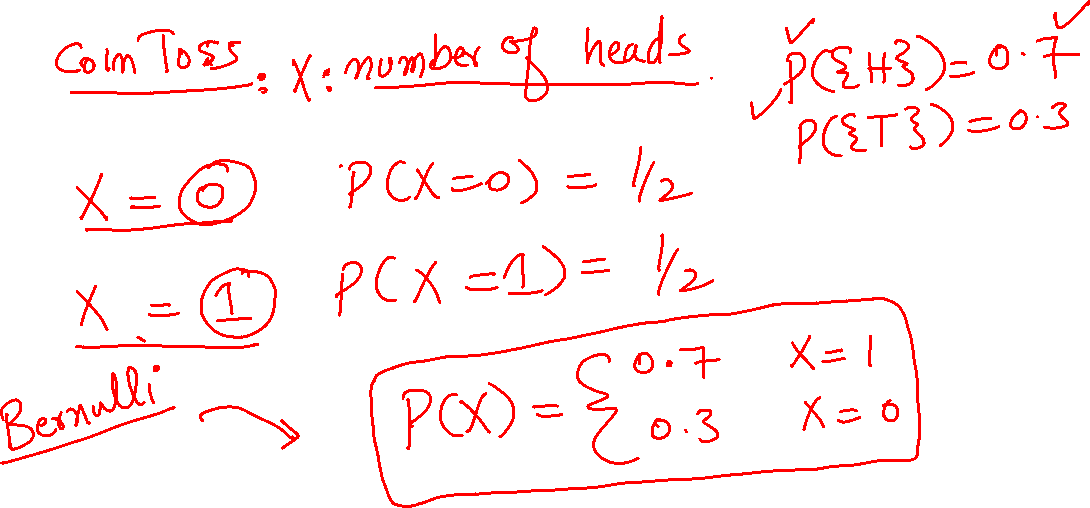 Coin Toss : X : number of heads.
P({H}) = 0.7
P({T}) = 0.3
X = 0 P(X=0) = 1/2
X = 1 P(X=1) = 1/2
Bernulli
P(X) = { 0.7 X = 1
0.3 X = 0